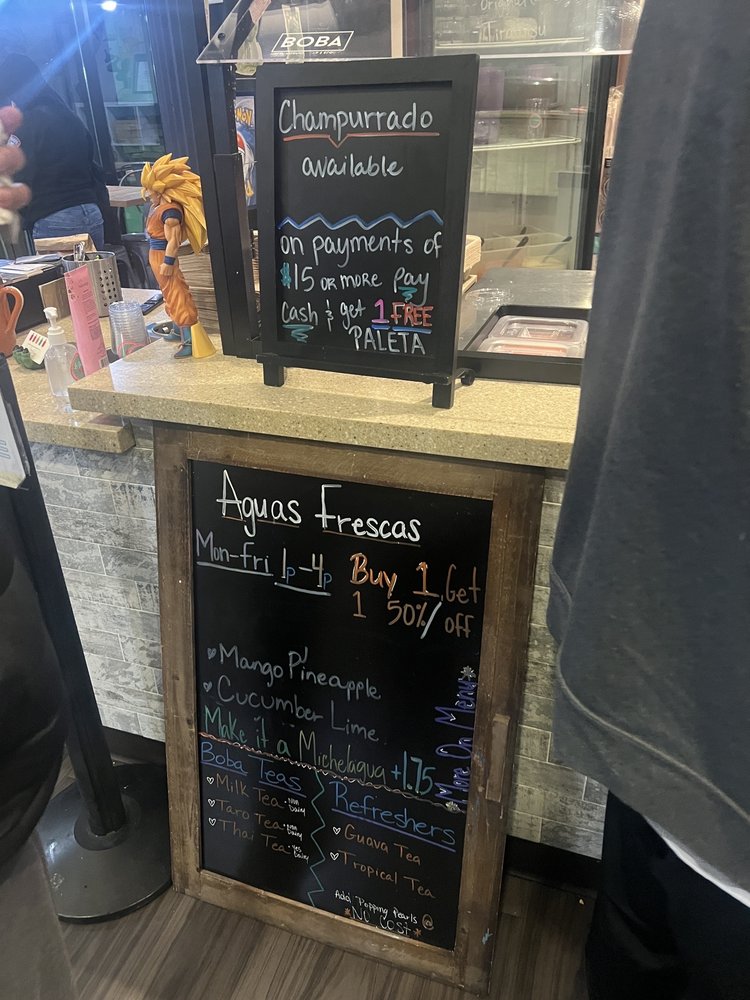 BOBA
Tiramisu
Champurrado
available
on payments of
$15 or more pay
cash & get 1 FREE
PALETA
Aguas Frescas
Mon-Fri 1p-4p
Buy 1 Get
1 50% off
Mango Pineapple
Cucumber Lime
Make it a Michelagua +1.75
More On Menu
Boba Teas
Milk Tea • Non Dairy
Taro Tea • Non Dairy
Thai Tea • Yes Dairy
Refreshers
Guava Tea
Tropical Tea
Add Popping Pearls @
*No Cost*